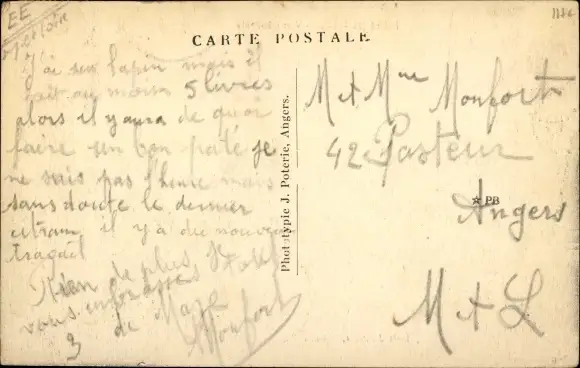 EE
1186
CARTE POSTALE
J'ai un lapin mais il
fait au moins 5 livres
alors il y aura de quoi
faire un bon paté je
ne sais pas l'heure mais
sans doute le dernier
tram il y a du nouveau
Rien de plus
vous embrasse
de
Monfort
Phototypie J. Poterie, Angers.
M & Mme Monfort
42 Pasteur
PB
Angers
M & L